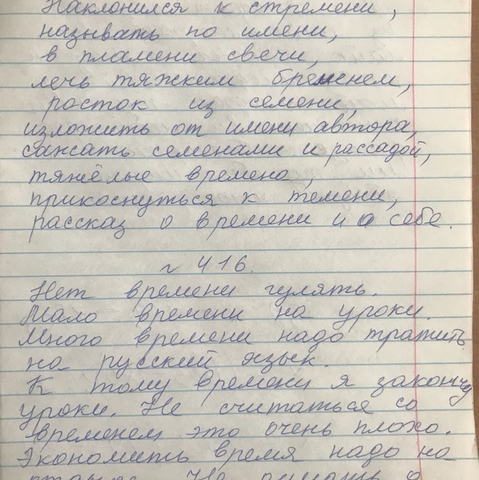 Наклонился к стремени,
называть по имени,
в пламени свечи,
лечь тяжским бременем,
росток из семени,
изложить от имени автора,
сажать семенами и рассадой,
тяжёлые времена,
прикоснуться к темени,
рассказ о времени и о себе.
№ 416.
Нет времени гулять.
Мало времени на уроки.
Много времени надо тратить
на русский язык.
К тому времени я закончу
уроки. Не считаться со
временем это очень плохо.
Экономить время надо на